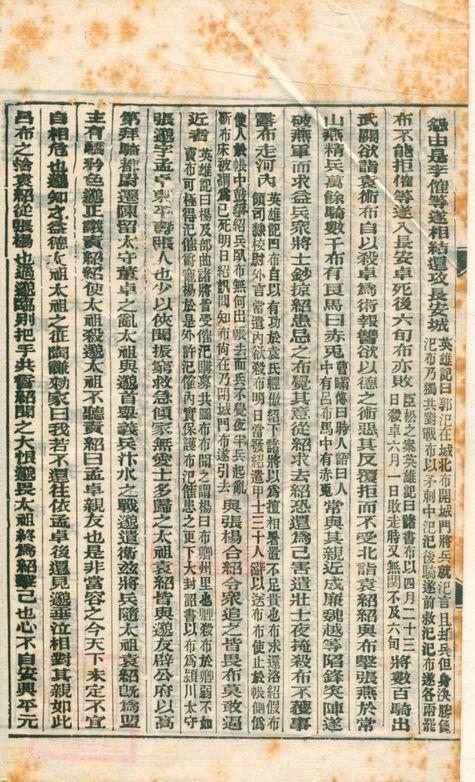 怨由是李傕等遂相結還攻長安城英雄記曰郭汜在城北布開城門將兵就汜言且却兵但身決勝負汜布乃獨共對戰布以矛刺中汜汜後騎遂前救汜汜布遂各兩罷
布不能拒傕等遂入長安卓死後六旬布亦敗臣松之案英雄記曰諸書布以四月二十三日殺卓六月一日敗走時又無閏不及六旬將數百騎出
武關欲詣袁術布自以殺卓爲術報讐欲以德之術惡其反覆拒而不受北詣袁紹紹與布擊張燕於常
山燕精兵萬餘騎數千布有良馬曰赤兎曹瞞傳曰時人語曰人中有呂布馬中有赤兎常與其親近成廉魏越等陷鋒突陣遂
破燕軍而求益兵衆將士鈔掠紹患忌之布覺其意從紹求去紹恐還爲己害遣壯士夜掩殺布不獲事
露布走河內英雄記曰布自以有功於袁氏輕傲紹下諸將以爲擅相署置不足貴也布求還洛紹假布領司隷校尉外言當遣內欲殺布明日當發紹遣甲士三十人辭以送布布使止於帳側僞
使人於帳中鼓箏紹兵臥布無何出帳去而兵不覺夜半兵起亂斫布床被謂爲已死明日紹訊問知布尚在乃閉城門布遂引去與張楊合紹令衆追之皆畏布莫敢逼
近者英雄記曰楊及部曲諸將皆受傕汜購募共圖布布聞之謂楊曰布卿州里也卿殺布於卿弱不如賣布可極得汜傕爵寵楊於是外許汜傕內實保護布汜傕患之更下大封詔書以布爲潁川太守
張邈字孟卓東平壽張人也少以俠聞振窮救急傾家無愛士多歸之太祖袁紹皆與邈友辟公府以高
第拜騎都尉遷陳留太守董卓之亂太祖與邈首舉義兵汴水之戰邈遣衞兹將兵隨太祖袁紹旣爲盟
主有驕矜色邈正議責紹紹使太祖殺邈太祖不聽責紹曰孟卓親友也是非當容之今天下未定不宜
自相危也邈知之益德太祖太祖之征陶謙勅家曰我若不還往依孟卓後還見邈垂泣相對其親如此
呂布之捨袁紹從張楊也過邈臨別把手共誓紹聞之大恨邈畏太祖終爲紹擊己也心不自安興平元